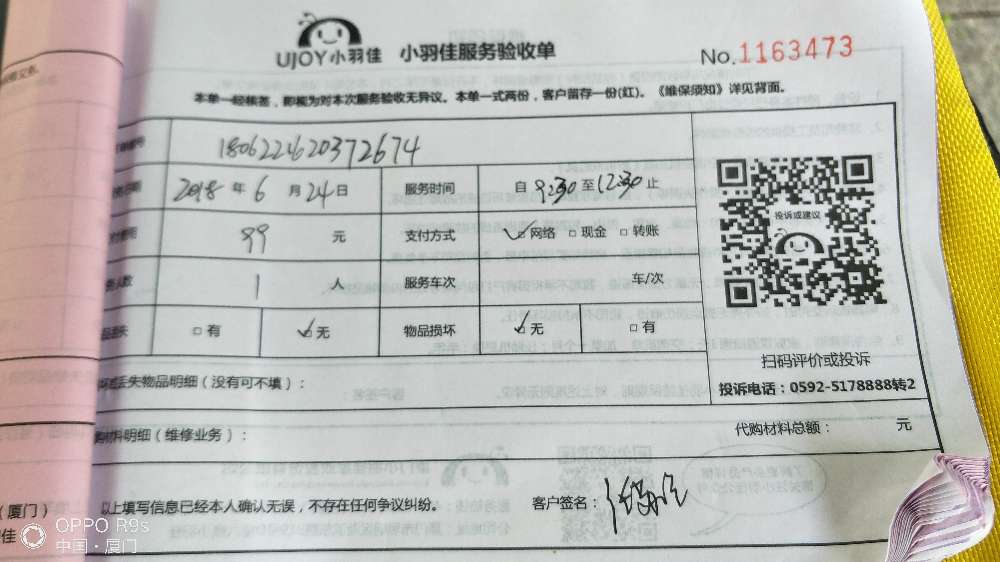 UJOY小羽佳 小羽佳服务验收单
No. 1163473
本单一经核签，即视为对本次服务验收无异议。本单一式两份，客户留存一份(红)。《维保须知》详见背面。
180622462037267​4
2018 年 6 月 24 日 服务时间 自 9:30 至 12:30 止
99 元 支付方式 ☑网络 □现金 □转账
投诉或建议
人数 1 人 服务车次 车/次
丢失 □有 ☑无 物品损坏 ☑无 □有
扫码评价或投诉
丢失物品明细（没有可不填）：
投诉电话：0592-5178888转2
材料明细（维修业务）： 代购材料总额： 元
（厦门） 以上填写信息已经本人确认无误，不存在任何争议纠纷。 客户签名：
佳
OPPO R9s
中国·厦门